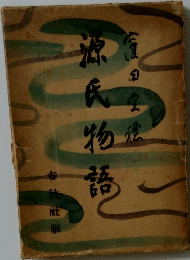 窪田空穂
源氏物語
春秋社版